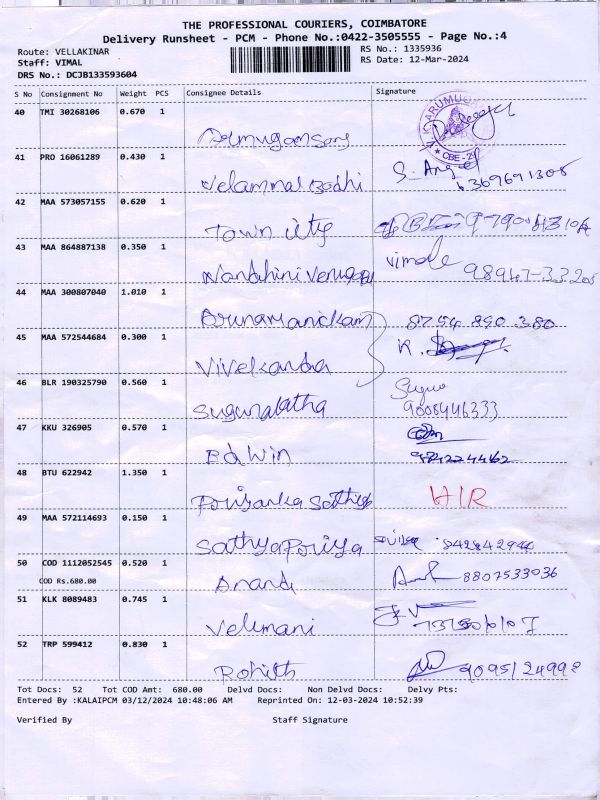 THE PROFESSIONAL COURIERS, COIMBATORE
Delivery Runsheet - PCM - Phone No.:0422-3505555 - Page No.:4
Route: VELLAKINAR RS No.: 1335936
Staff: VIMAL RS Date: 12-Mar-2024
DRS No.: DCJB133593604
S No Consignment No Weight PCS Consignee Details Signature
40 TMI 30268106 0.670 1
CBE-29
41 PRO 16061289 0.430 1
Velammal Bodhi S. Angel
42 MAA 573057155 0.620 1
Town city
43 MAA 864887138 0.350 1
Nandhini vimale
44 MAA 300807040 1.010 1
Arunamanickam 8754 890 380
45 MAA 572544684 0.300 1
Vivekanda K.
46 BLR 190325790 0.560 1
Sugunalatha 9008446333
47 KKU 326905 0.570 1
Edwin 9842224462
48 BTU 622942 1.350 1
Poriyanka HIR
49 MAA 572114693 0.150 1
Sathya Poriya
50 COD 1112052545 0.520 1
COD Rs.680.00
Anand 8807533036
51 KLK 8089483 0.745 1
Velimani
52 TRP 599412 0.830 1
Rohith 9095124998
Tot Docs: 52 Tot COD Amt: 680.00 Delvd Docs: Non Delvd Docs: Delvy Pts:
Entered By :KALAIPCM 03/12/2024 10:48:06 AM Reprinted On: 12-03-2024 10:52:39
Verified By Staff Signature